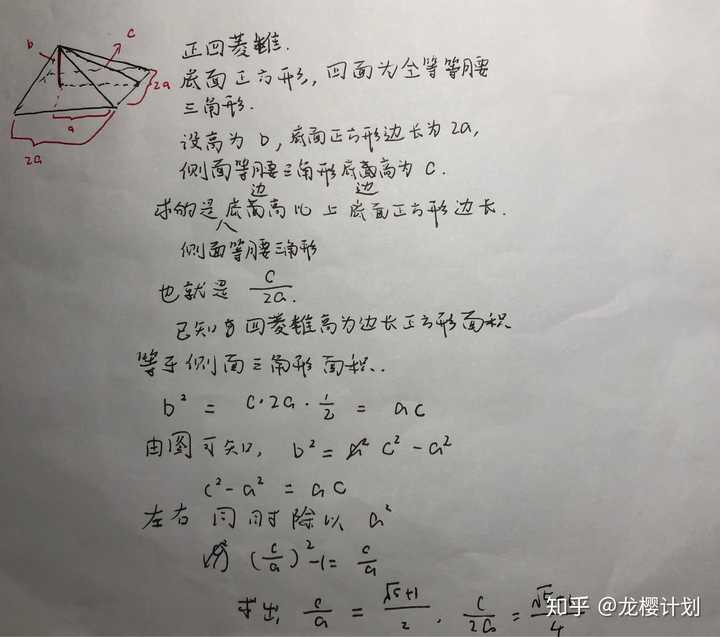 b
c
2a
a
2a
正四菱锥.
底面正方形,四面为全等等腰
三角形.
设高为 b,底面正方形边长为2a,
侧面等腰三角形底边高为 c.
求的是底边高比上底面正方形边长.
侧面等腰三角形
也就是 c/2a.
已知四菱锥高为边长正方形面积
等于侧面三角形面积.
b² = c·2a·1/2 = ac
由图可知, b² = c² - a²
c² - a² = ac
左右同时除以 a²
(c/a)² - 1 = c/a
求出 c/a = (√5+1)/2 . c/2a =
知乎 @龙樱计划